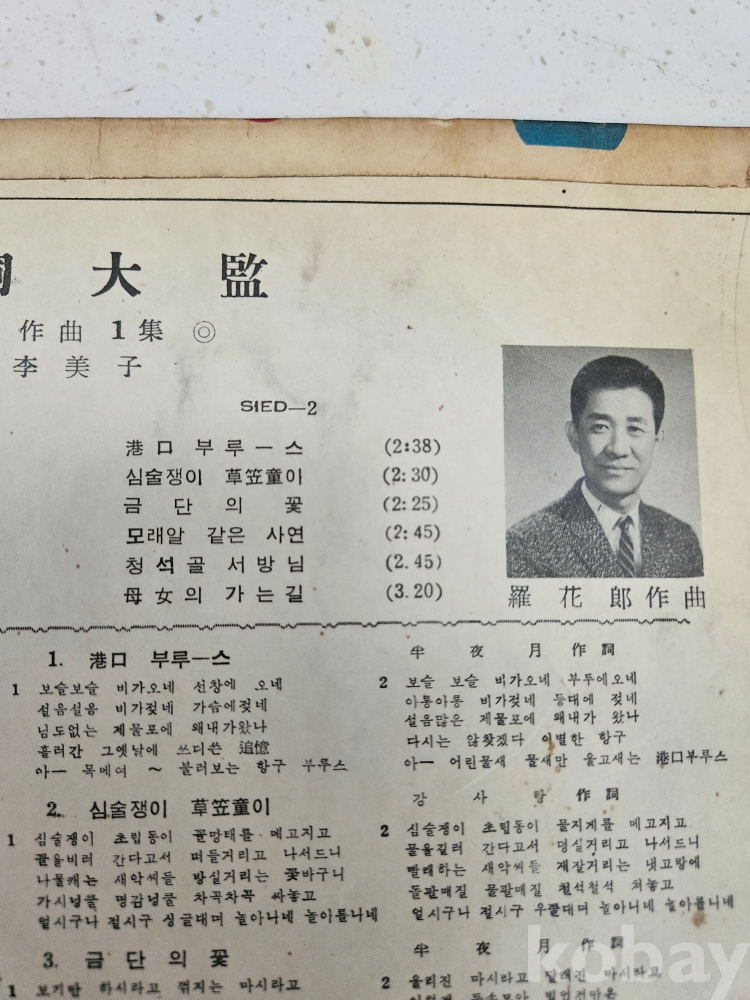 大監
作曲 1集 ◎
李美子
SIED—2
港口 부루ー스 (2:38)
심술쟁이 草笠童이 (2:30)
금단의 꽃 (2:25)
모래알 같은 사연 (2:45)
청석골 서방님 (2.45)
母女의 가는길 (3.20)
羅花郎作曲
1. 港口 부루ー스
半夜月 作詞
1 보슬보슬 비가오네 선창에 오네
설음설음 비가젖네 가슴에젖네
님도없는 제물포에 왜내가왔나
흘러간 그옛날에 쓰디쓴 追憶
아ー 목메여 ~ 불러보는 항구 부루스
2 보슬 보슬 비가오네 부두에오네
아롱아롱 비가젖네 등대에 젖네
설음많은 제물포에 왜내가 왔나
다시는 않찾겠다 이별한 항구
아ー 어린물새 물새만 울고새는 港口부루스
2. 심술쟁이 草笠童이
강사랑 作詞
1 심술쟁이 초립동이 꼴망태를 메고지고
꼴을비러 간다고서 떠들거리고 나서드니
나물캐는 새악씨들 방실거리는 꽃바구니
가시넝쿨 명감넝쿨 차곡차곡 싸놓고
얼시구나 절시구 싱글대며 놀아나네 놀아를나네
2 심술쟁이 초립동이 물지게를 메고지고
물을길러 간다고서 덩실거리고 나서드니
빨래하는 새악씨들 재잘거리는 냇고랑에
돌팔매질 물팔매질 철석철석 처놓고
얼시구나 절시구 우쭐대며 놀아나네 놀아를나네
3. 금단의 꽃
半夜月 作詞
1 보기만 하시라고 꺾지는 마시라고
2 울리진 마시라고 달래진 마시라고
kobay